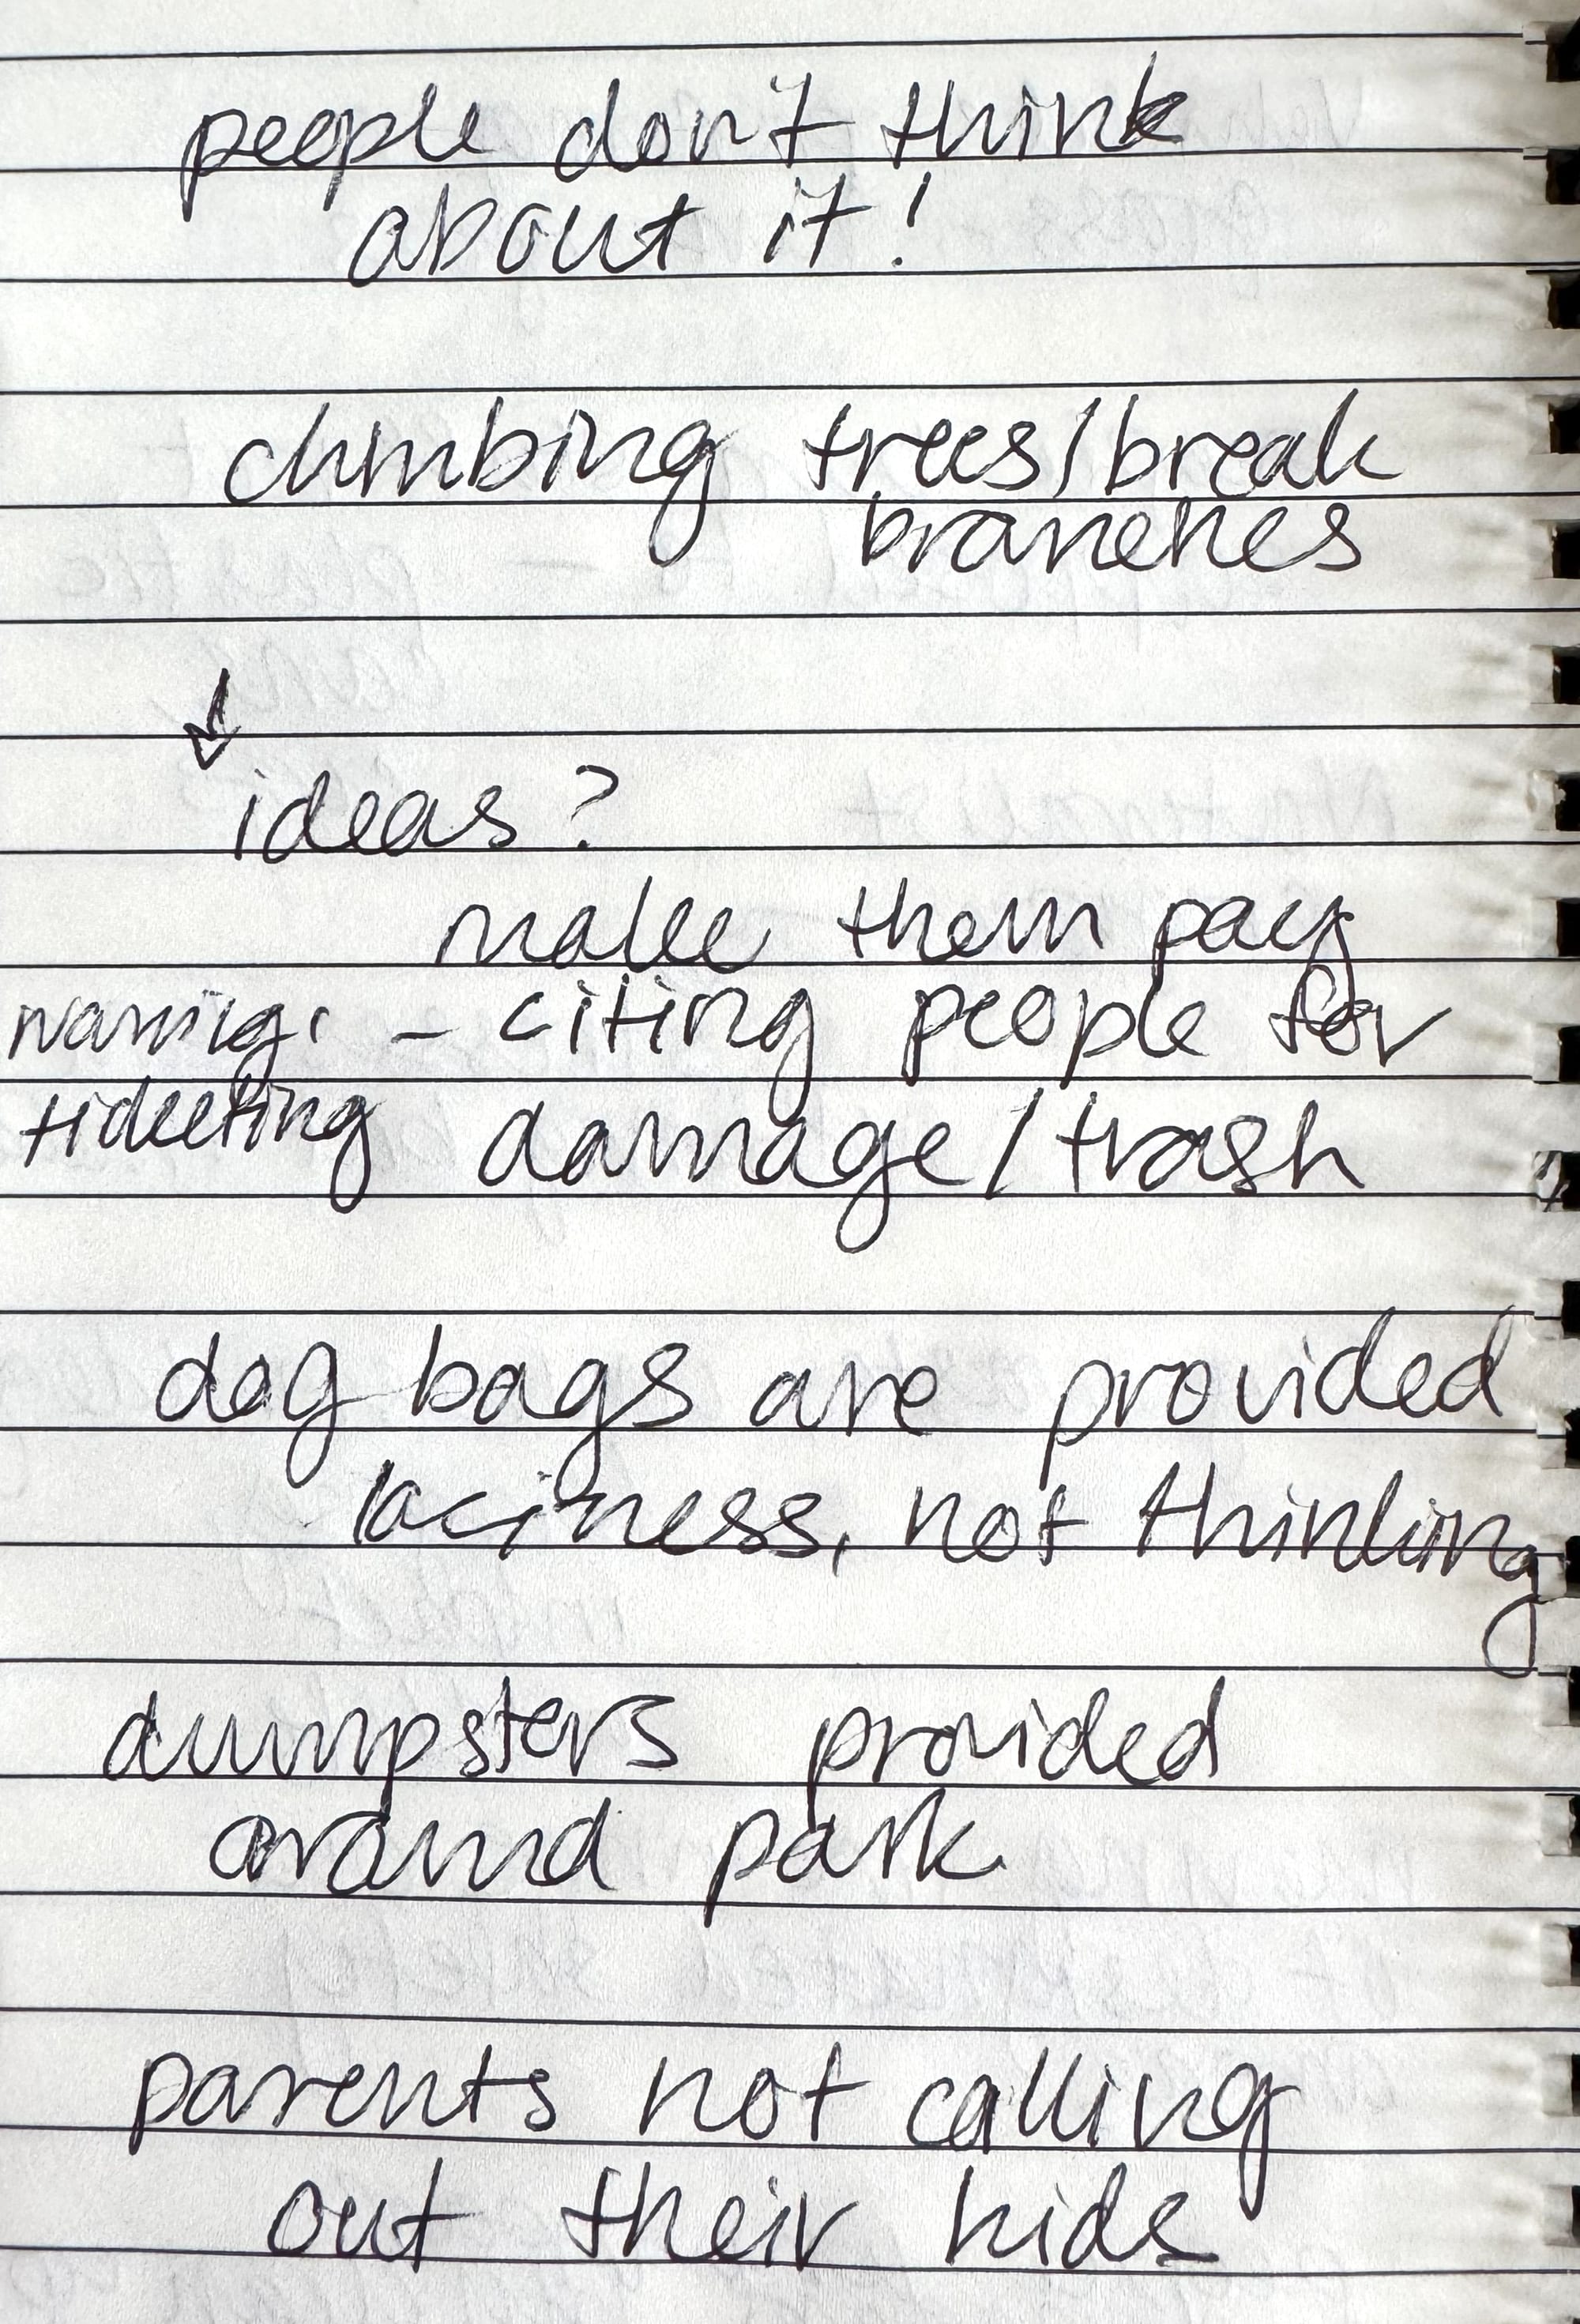 people don't think
about it!
climbing trees/break
branches
ideas?
make them pay
warning, - citing people for
ticketing damage/trash
dog bags are provided
laciness, not thinking
dumpsters provided
around park
parents not calling
out their kids